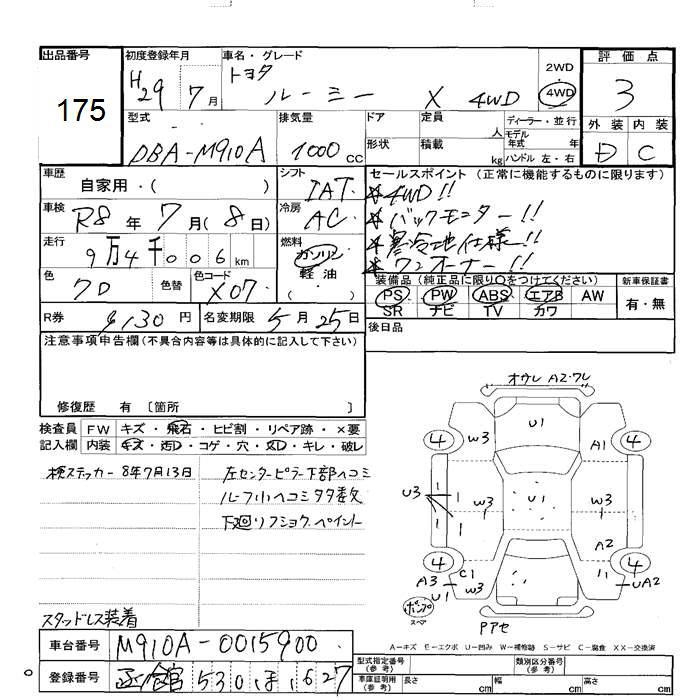 出品番号 初度登録年月 車名・グレード 評価点
175
H29 7月 トヨタ ルーミー X 4WD 2WD 4WD 3
型式 排気量 ドア 定員 人 ディーラー・並行 外装 内装
形状 積載 kg モデル年式 年 ハンドル 左・右
DBA-M910A 1000cc D C
車歴 シフト セールスポイント(正常に機能するものに限ります)
自家用・( ) IAT ★4WD!!
車検 R8年7月(8日) 冷房 AC ★バックモニター!!
走行 9万4千006km 燃料 ガソリン ★寒冷地仕様!!
軽油 ( ・ ) ★ワンオーナー!!
色 色替 色コード X07 装備品(純正品に限り○をつけてください) 新車保証書
PS PW ABS エアB AW 有・無
SR ナビ TV カワ
R券 9130円 名変期限 5月25日 後日品
注意事項申告欄(不具合内容等は具体的に記入して下さい)
修復歴 有 〔箇所 〕
検査員 FW キズ・飛石・ヒビ割・リペア跡・×要
記入欄 内装 キズ・汚D・コゲ・穴・ヌD・キレ・破レ
検ステッカー 8年7月13日 左センターピラー下部ヘコミ
ルーフ小ヘコミ多数
下廻リフショク、ペイント
スタッドレス装着
車台番号 M910A-0015900
登録番号 函館 530 ほ 627
オウレ A2・ワレ
U1
4 W3 A1 4
U3 W3 U1 W3
A2
4 4
A3 C1 W3 UA2
U1
パンク スペア
Pアセ
A-キズ E-エクボ U-凹み W-補修跡 S-サビ C-腐食 XX-交換済
型式指定番号(参考) 類別区分番号(参考)
車庫証明用(参考) 長さ cm 幅 cm 高さ cm